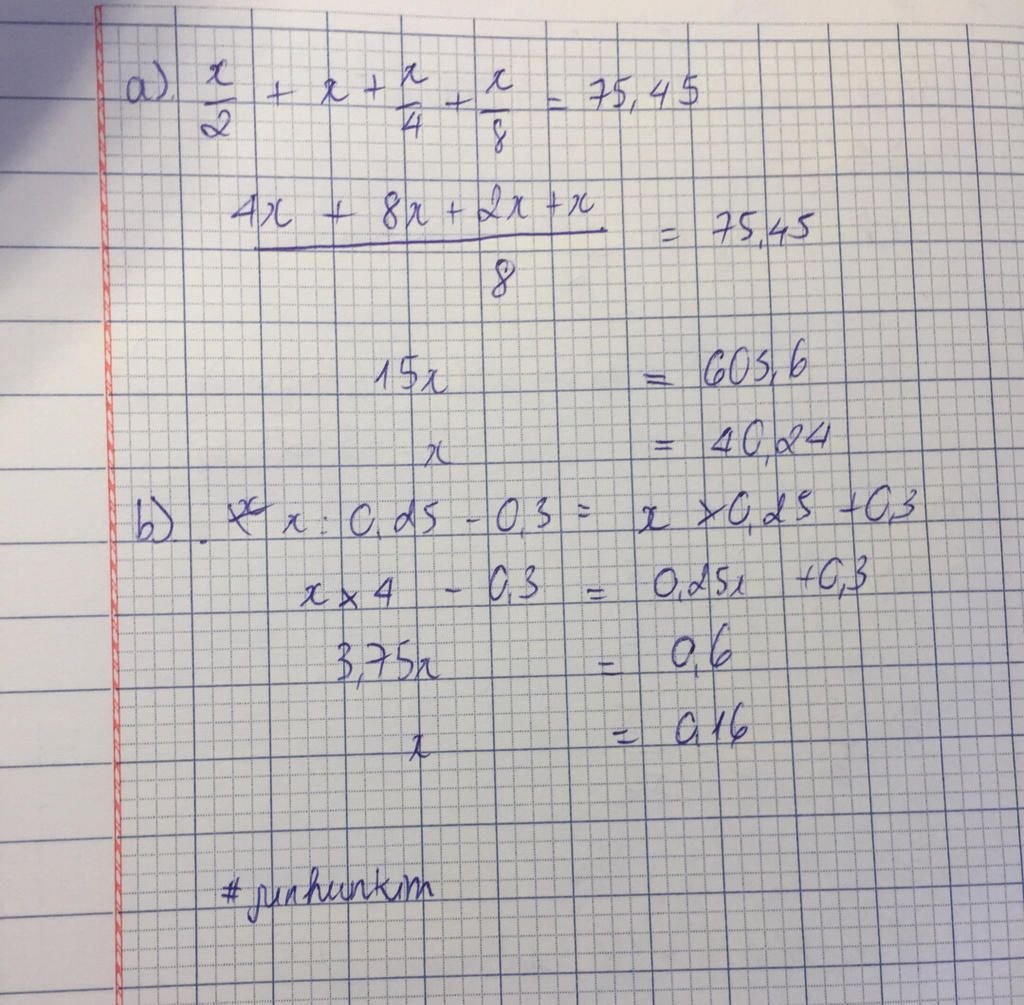 a). x/2 + x + x/4 + x/8 = 75,45
(4x + 8x + 2x + x)/8 = 75,45
15x = 603,6
x = 40,24
b). x : 0,25 - 0,3 = x × 0,25 + 0,3
x × 4 - 0,3 = 0,25x + 0,3
3,75x = 0,6
x = 0,16
# junhunkim